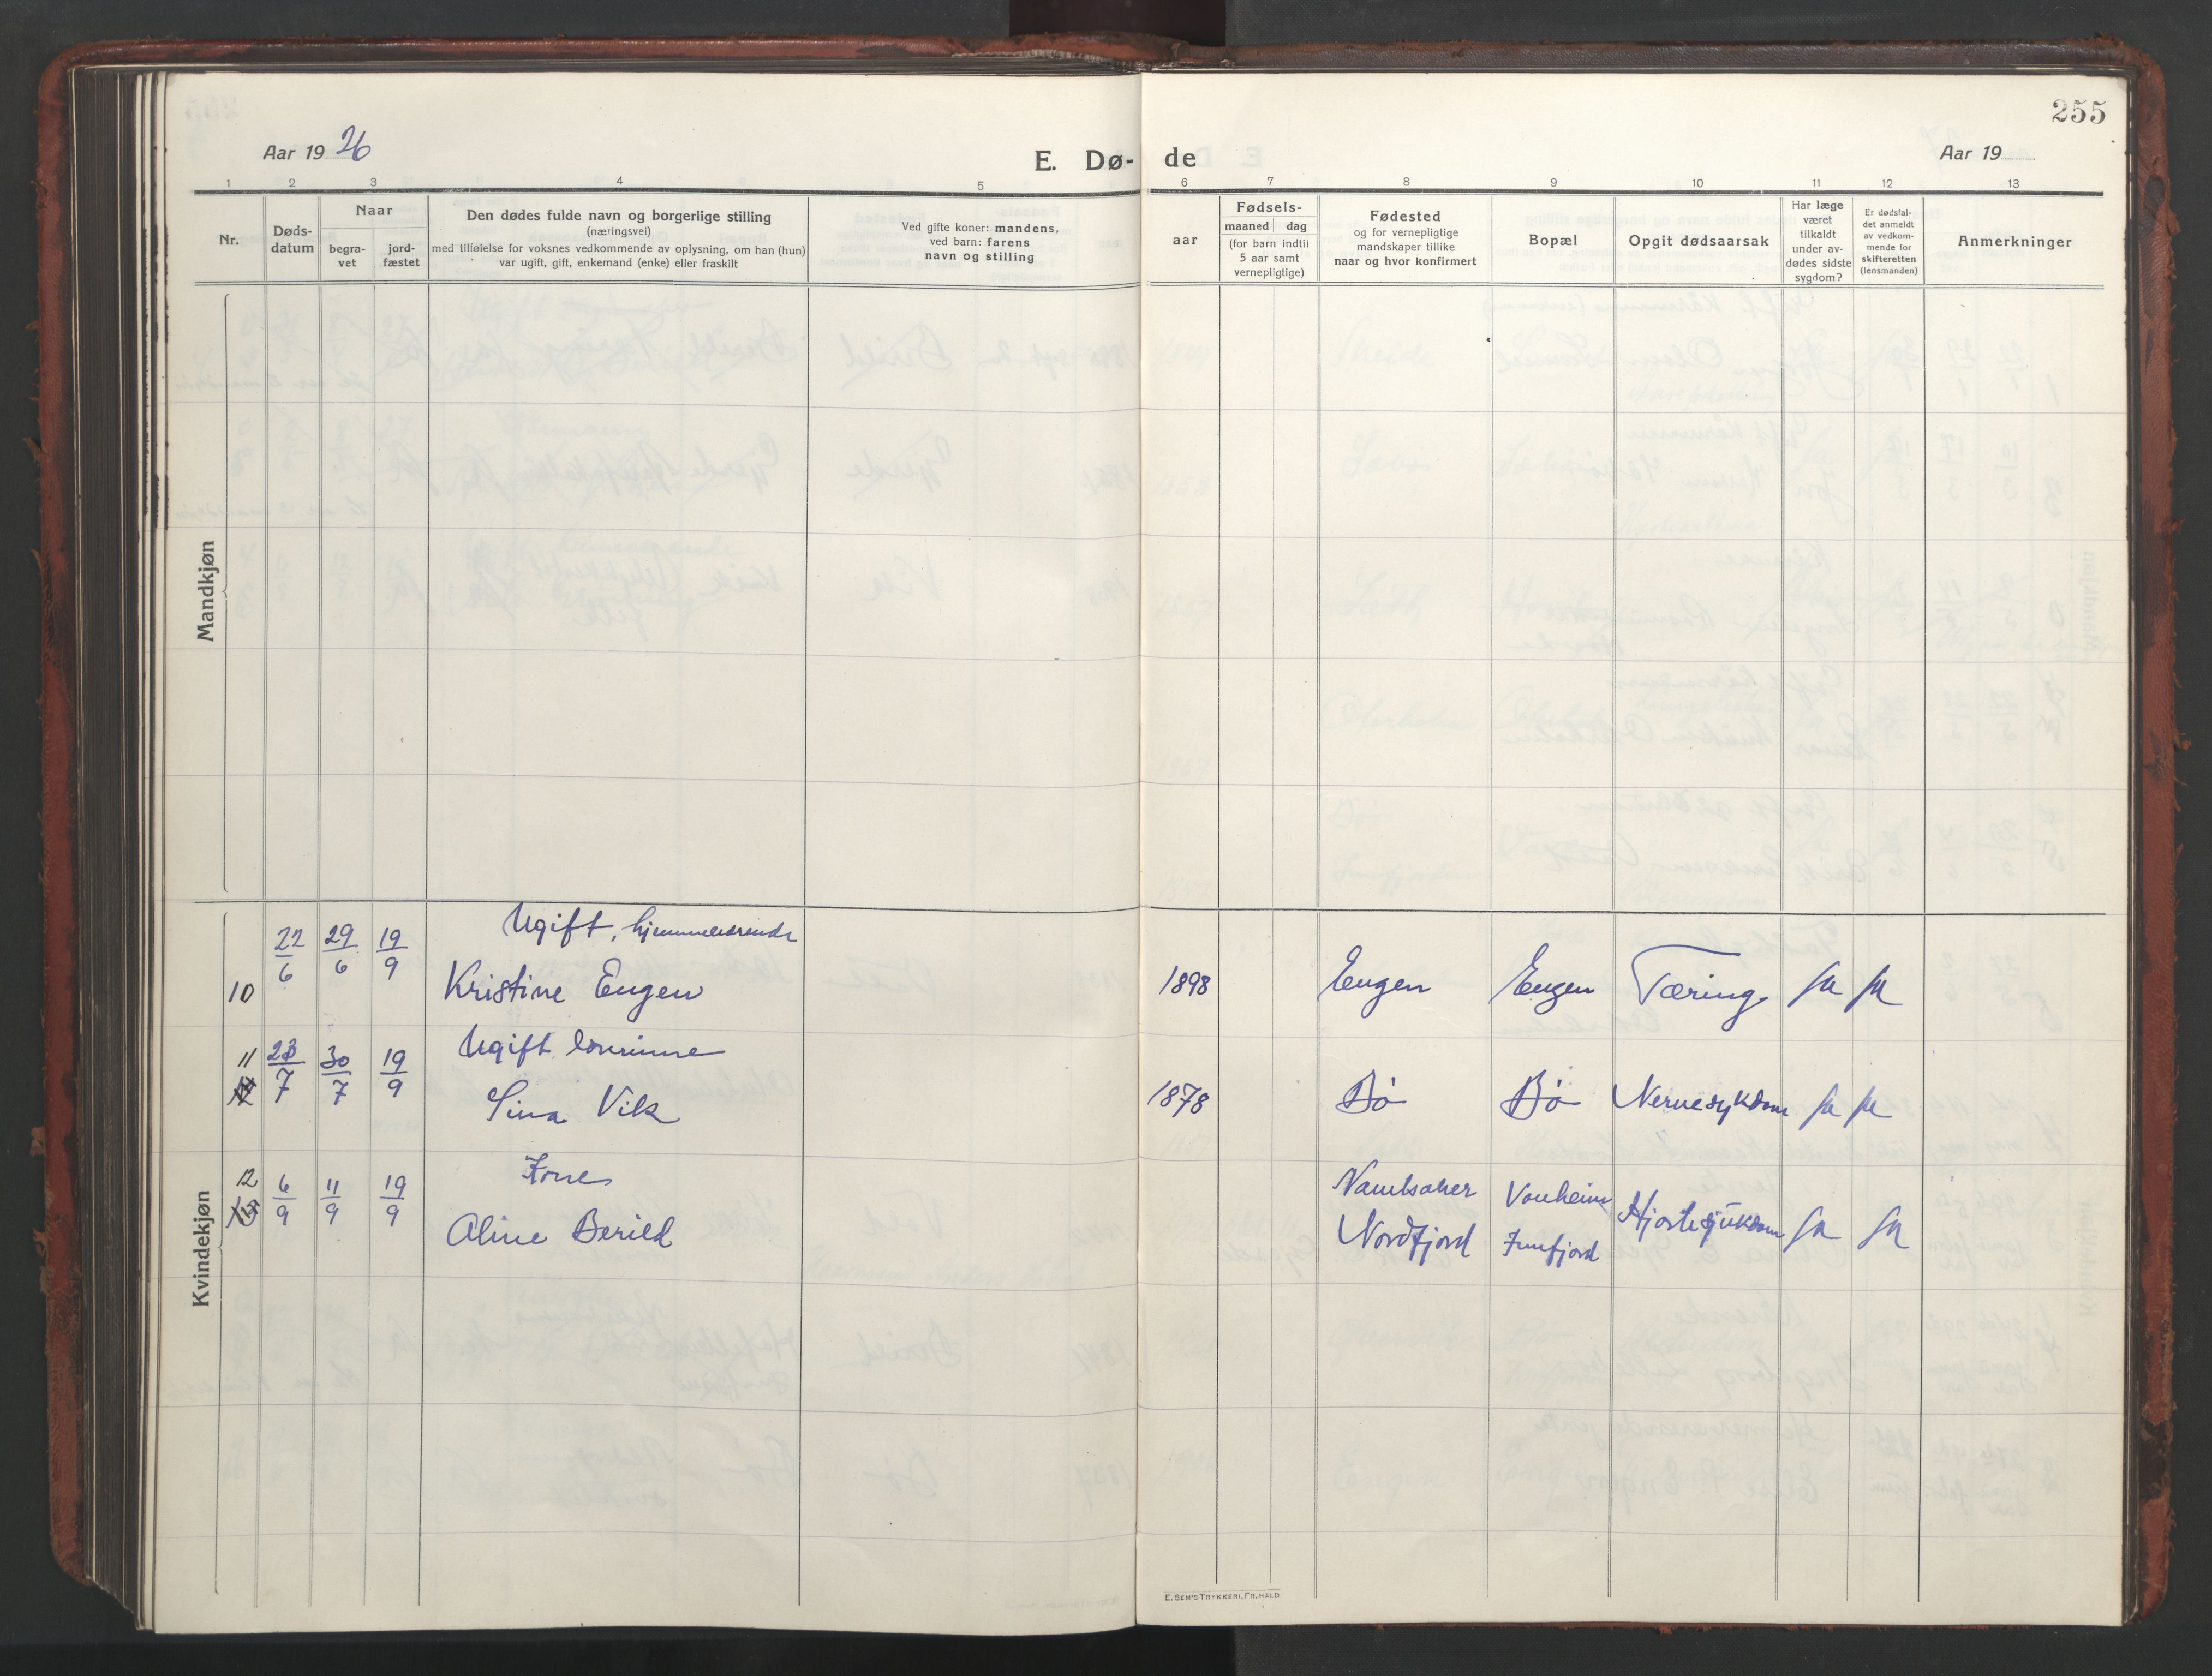 255
Aar 19 26
E. Dø- de
Aar 19
1 2 3 4 5 6 7 8 9 10 11 12 13
Nr.
Døds-
datum
Naar
begra-
vet
jord-
fæstet
Den dødes fulde navn og borgerlige stilling
(næringsvei)
med tilføielse for voksnes vedkommende av oplysning, om han (hun)
var ugift, gift, enkemand (enke) eller fraskilt
Ved gifte koner: mandens,
ved barn: farens
navn og stilling
aar
Fødsels-
maaned dag
(for barn indtil
5 aar samt
vernepligtige)
Fødested
og for vernepligtige
mandskaper tillike
naar og hvor konfirmert
Bopæl
Opgit dødsaarsak
Har læge
været
tilkaldt
under av-
dødes sidste
sygdom?
Er dødsfal-
det anmeldt
av vedkom-
mende for
skifteretten
(lensmanden)
Anmerkninger
Mandkjøn
Kvindekjøn
10 22/6 29/6 19/9 Ugift, hjemmeværende
Kristine Eugen 1898 Eugen Eugen Tæring Ja Ja
11 23/7 30/7 19/9 Ugift lærerinne
Sina Vik 1878 Bø Bø Nervesykdom Ja Ja
12 6/9 11/9 19/9 Kone
Aline Berild
Nordfjord
Hjertesjukdom Ja Ja
E. SEM'S TRYKKERI, FR.HALD